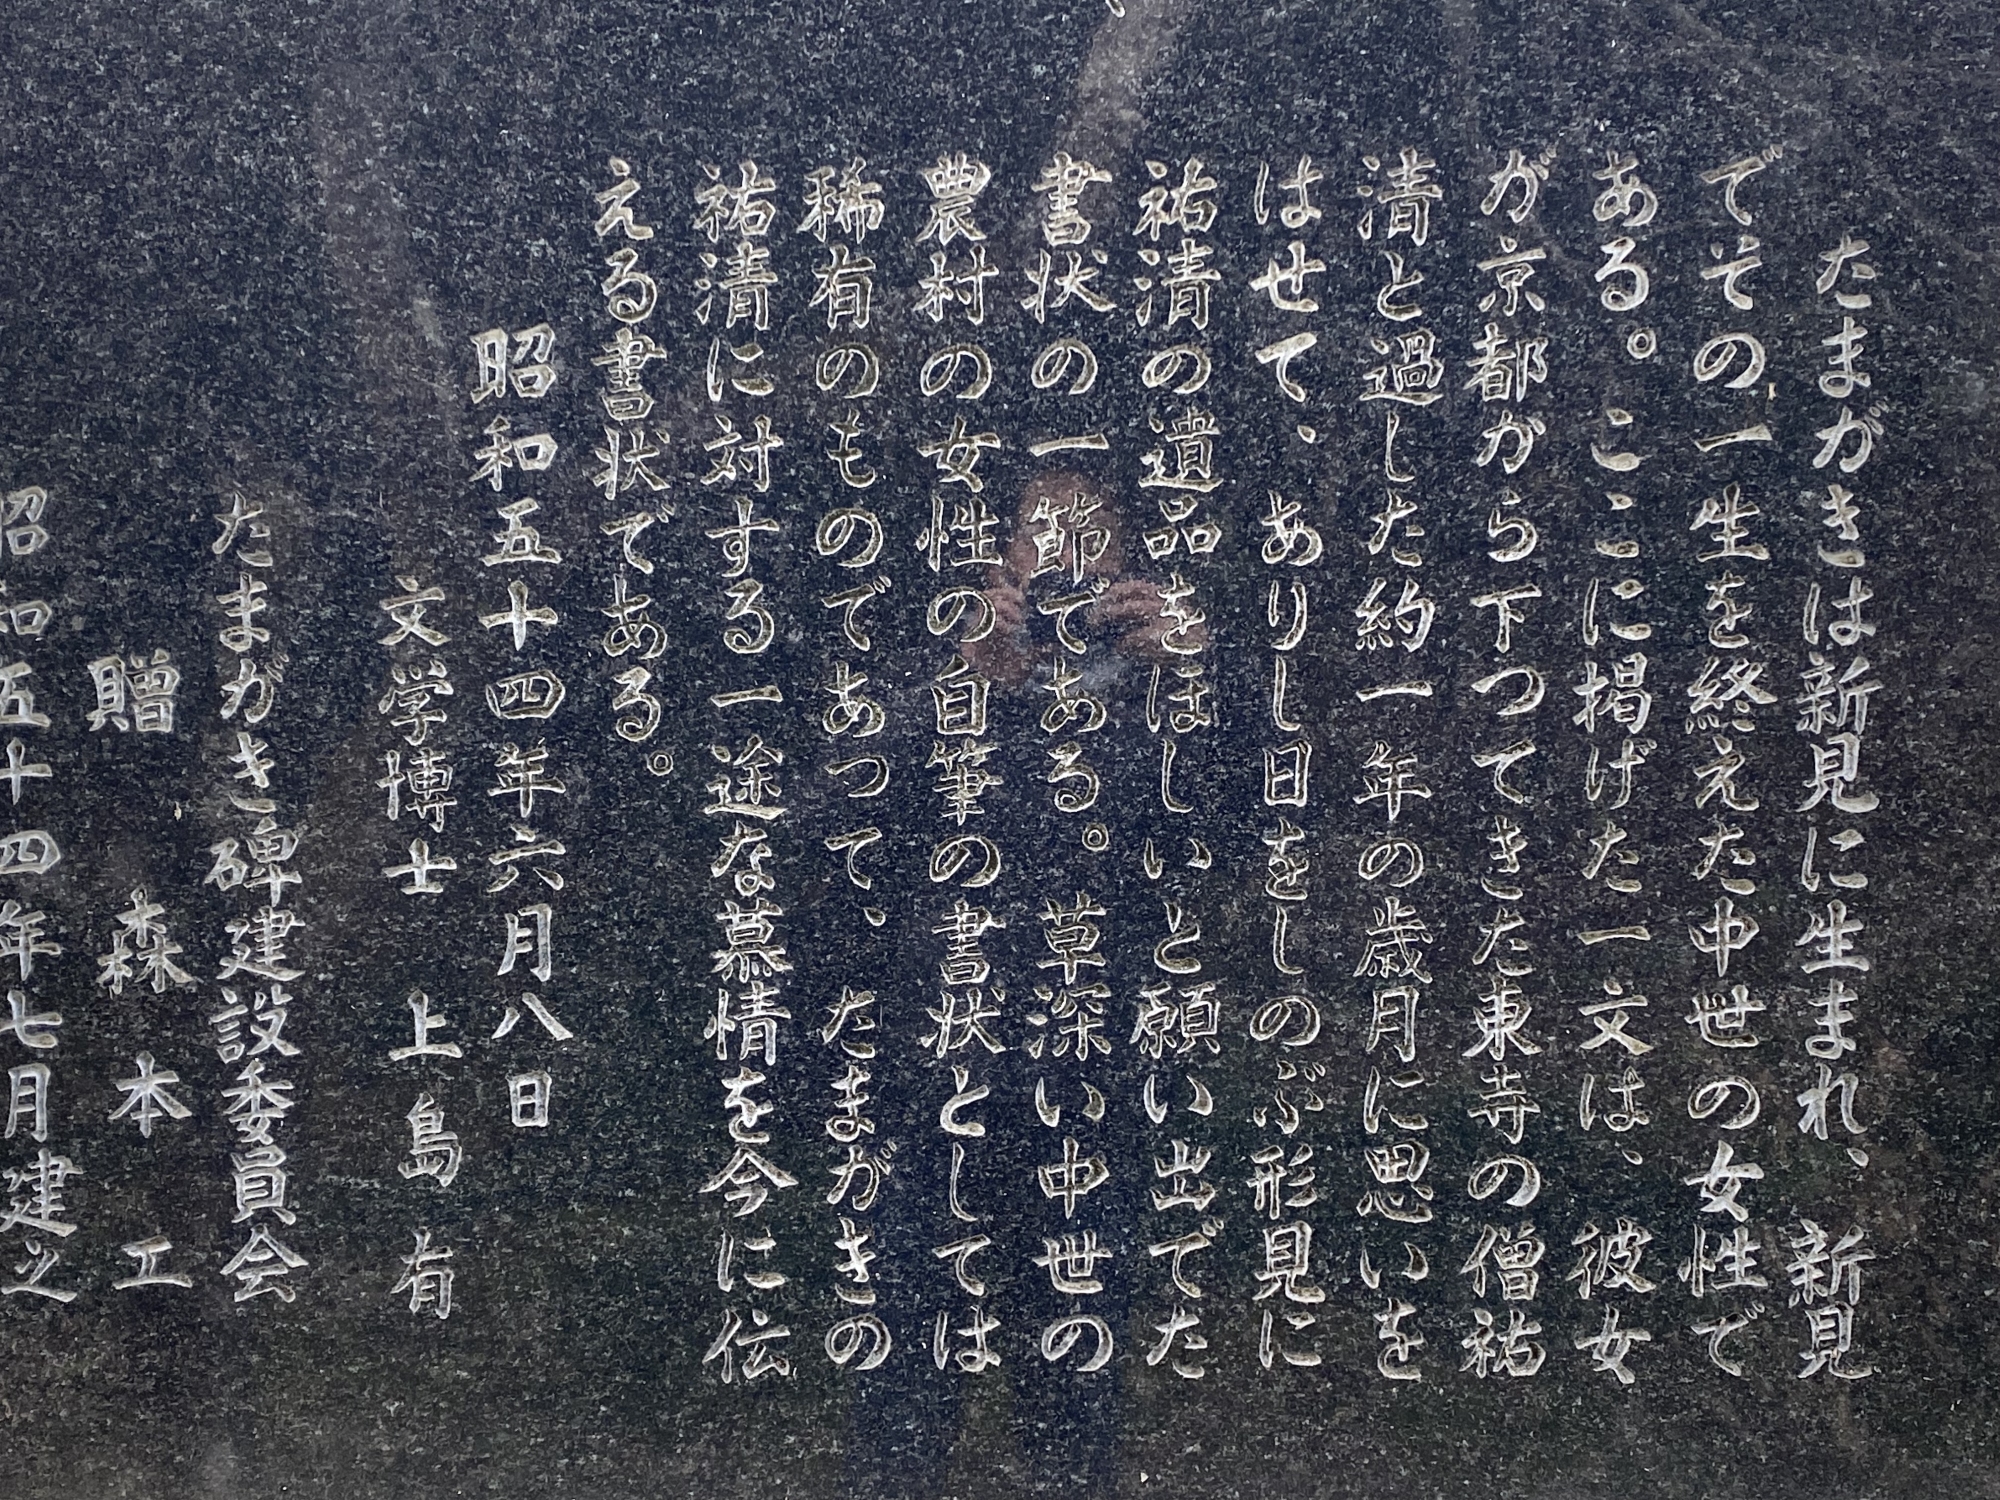 たまがきは新見に生まれ、新見
でその一生を終えた中世の女性で
ある。ここに掲げた一文は、彼女
が京都から下つてきた東寺の僧祐
清と過した約一年の歳月に思いを
はせて、ありし日をしのぶ形見に
祐清の遺品をほしいと願い出でた
書状の一節である。草深い中世の
農村の女性の自筆の書状としては
稀有のものであつて、たまがきの
祐清に対する一途な慕情を今に伝
える書状である。
昭和五十四年六月八日
文学博士 上島有
たまがき碑建設委員会
贈 森本工
昭和五十四年七月建之